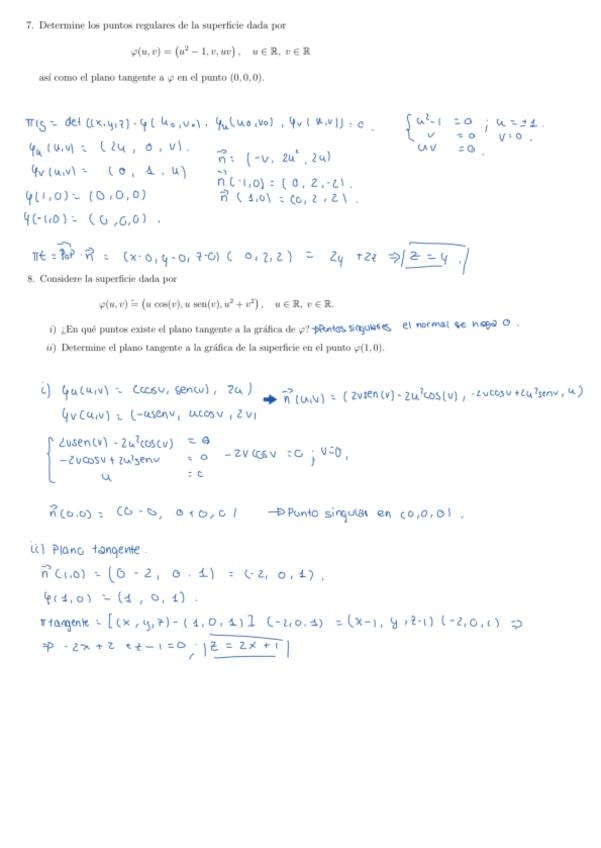 7. Determine los puntos regulares de la superficie dada por
φ(u, v) = (u² − 1, v, uv), u ∈ ℝ, v ∈ ℝ
así como el plano tangente a φ en el punto (0, 0, 0).
πtg = det ((x,y,z) - φ(u₀,v₀), φu(u₀,v₀), φv(u,v)) = 0.
{ u²-1 = 0 ; u = ±1.
v = 0 v = 0.
uv = 0.
φu(u,v) = (2u, 0, v).
φv(u,v) = (0, 1, u)
n⃗ = (-v, 2u², 2u)
n⃗(-1,0) = (0, 2, -2).
n⃗(1,0) = (0, 2, 2).
φ(1,0) = (0,0,0)
φ(-1,0) = (0,0,0).
πt = P₀P · n⃗ = (x-0, y-0, z-0)(0,2,2) = 2y + 2z ⇒ z = y.
8. Considere la superficie dada por
φ(u, v) = (u cos(v), u sen(v), u² + v²), u ∈ ℝ, v ∈ ℝ.
i) ¿En qué puntos existe el plano tangente a la gráfica de φ? → puntos singulares el normal se haga 0.
ii) Determine el plano tangente a la gráfica de la superficie en el punto φ(1, 0).
i) φu(u,v) = (cosv, senv, 2u) → n⃗(u,v) = (2vsen(v) - 2u²cos(v), -2vcosv + 2u²senv, u)
φv(u,v) = (-usenv, ucosv, 2v)
{ 2vsen(v) - 2u²cos(v) = 0
-2vcosv + 2u²senv = 0 -2vcosv = 0 ; v=0.
u = 0
n⃗(0,0) = (0-0, 0+0, 0) → Punto singular en (0,0,0).
ii) Plano tangente.
n⃗(1,0) = (0-2, 0, 1) = (-2, 0, 1).
φ(1,0) = (1, 0, 1).
πtangente = [(x,y,z) - (1,0,1)] (-2,0,1) = (x-1, y, z-1)(-2,0,1) ⇒
⇒ -2x + 2 + z - 1 = 0 ; z = 2x + 1